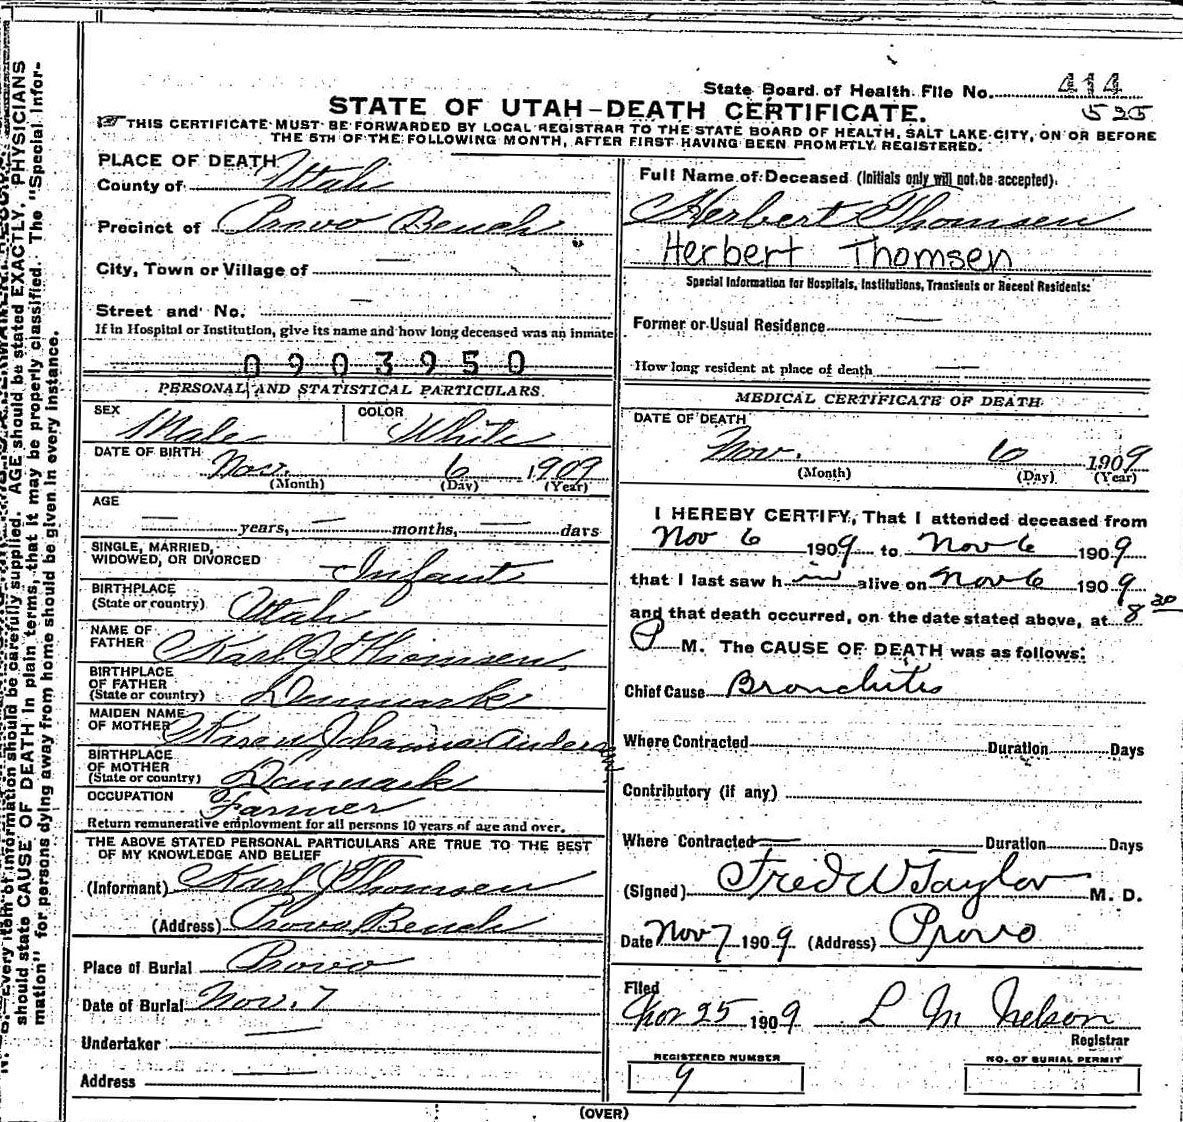 State Board of Health File No. 414
525
STATE OF UTAH-DEATH CERTIFICATE.
THIS CERTIFICATE MUST BE FORWARDED BY LOCAL REGISTRAR TO THE STATE BOARD OF HEALTH, SALT LAKE CITY, ON OR BEFORE
THE 5TH OF THE FOLLOWING MONTH, AFTER FIRST HAVING BEEN PROMPTLY REGISTERED.
PLACE OF DEATH
County of Utah
Precinct of Provo Bench
City, Town or Village of —
Street and No. —
If in Hospital or Institution, give its name and how long deceased was an inmate
0903950
PERSONAL AND STATISTICAL PARTICULARS.
SEX Male COLOR White
DATE OF BIRTH Nov. 6 1909
(Month) (Day) (Year)
AGE
— years, — months, — days
SINGLE, MARRIED,
WIDOWED, OR DIVORCED Infant
BIRTHPLACE
(State or country) Utah
NAME OF
FATHER Karl J Thomsen
BIRTHPLACE
OF FATHER
(State or country) Denmark
MAIDEN NAME
OF MOTHER Kiren Johanna Andersen
BIRTHPLACE
OF MOTHER
(State or country) Denmark
OCCUPATION Farmer
Return remunerative employment for all persons 10 years of age and over.
THE ABOVE STATED PERSONAL PARTICULARS ARE TRUE TO THE BEST
OF MY KNOWLEDGE AND BELIEF
(Informant) Karl J Thomsen
(Address) Provo Bench
Place of Burial Provo
Date of Burial Nov. 7
Undertaker —
Address —
Full Name of Deceased (Initials only will not be accepted).
Herbert Thomsen
Herbert Thomsen
Special Information for Hospitals, Institutions, Transients or Recent Residents:
Former or Usual Residence —
How long resident at place of death —
MEDICAL CERTIFICATE OF DEATH
DATE OF DEATH
Nov. 6 1909
(Month) (Day) (Year)
I HEREBY CERTIFY, That I attended deceased from
Nov 6 1909 to Nov 6 1909
that I last saw him alive on Nov 6 1909
and that death occurred, on the date stated above, at 8 30
P M. The CAUSE OF DEATH was as follows:
Chief Cause Bronchitis
Where Contracted Duration Days
Contributory (if any)
Where Contracted — Duration Days
(Signed) Fred W Taylor M. D.
Date Nov 7 1909 (Address) Provo
Filed
Nov 25 1909 L M Nelson
Registrar
REGISTERED NUMBER
9
NO. OF BURIAL PERMIT
(OVER)
Every item of information should be carefully supplied. AGE should be stated EXACTLY, PHYSICIANS
should state CAUSE OF DEATH in plain terms, that it may be properly classified. The "Special Infor-
mation" for persons dying away from home should be given in every instance.